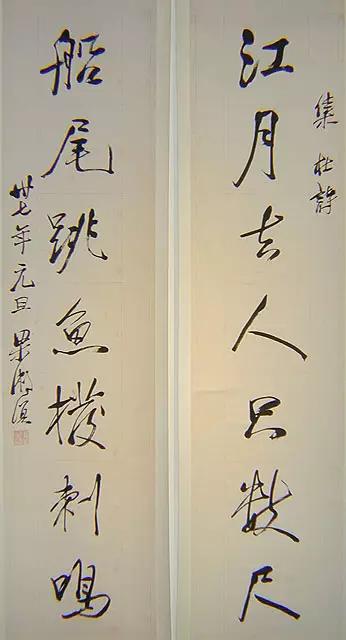 集杜詩
江月去人只數尺
船尾跳魚撥刺鳴
卅七年元旦 梁漱溟